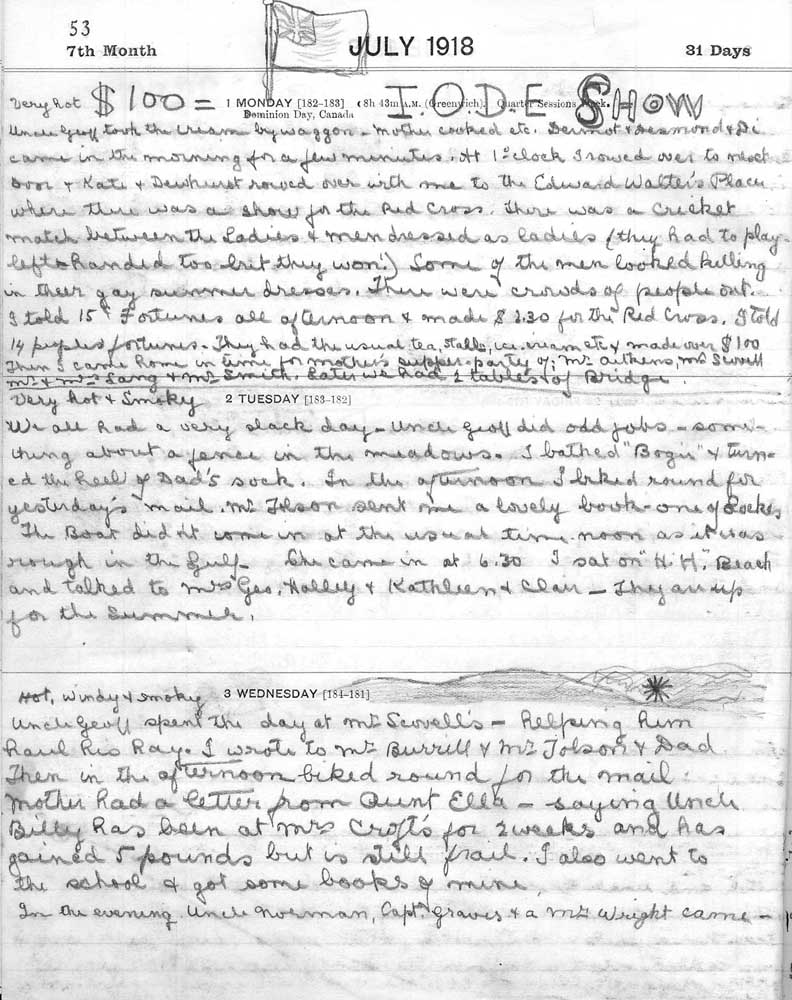 53
7th Month JULY 1918 31 Days
Very hot $100 = 1 MONDAY [182–183] (8h 43m A.M. (Greenwich). Quarter Sessions Week. I.O.D.E SHOW
Dominion Day, Canada
Uncle Geoff took the cream by waggon - Mother cooked etc. Dermot & Desmond & Di
came in the morning for a few minutes. At 1 o'clock I rowed over to next
door & Kate & Dewhurst rowed over with me to the Edward Walter's Place
where there was a show for the Red Cross. There was a Cricket
match between the Ladies & men dressed as ladies (they had to play
left-handed too but they won!) Some of the men looked killing
in their gay summer dresses. There were crowds of people out.
I told 15 Fortunes all afternoon & made $2.30 for the Red Cross. I told
14 peoples fortunes. They had the usual tea, stalls, ice cream etc & made over $100
Then I came home in time for mother's supper-party of; Mr Aitkens, Mr Scovell
Mr & Mrs Lang & Mr Smith. Later we had 2 tables of Bridge.
Very hot & Smoky 2 TUESDAY [183–182]
We all had a very slack day - Uncle Geoff did odd jobs - some-
thing about a fence in the meadows. I bathed "Bogie" & turn-
ed the heel of Dad's sock. In the afternoon I biked round for
yesterday's mail. Mr Tolson sent me a lovely book - one of Lockes
The Boat didn't come in at the usual time noon as it was
rough in the Gulf - She came in at 6.30 I sat on "H.H." Beach
and talked to Mrs Geo. Halley & Kathleen & Clair - They are up
for the Summer.
Hot, windy & smoky 3 WEDNESDAY [184–181]
Uncle Geoff spent the day at Mr Scovell's - helping him
haul his hay. I wrote to Mr Burrill & Mr Tolson & Dad
Then in the afternoon biked round for the mail.
Mother had a letter from Aunt Ella - saying Uncle
Billy has been at Mrs Croft's for 2 weeks and has
gained 5 pounds but is still frail. I also went to
the school & got some books of mine,
In the evening Uncle Norman, Capt. Graves & a Mr Wright came -